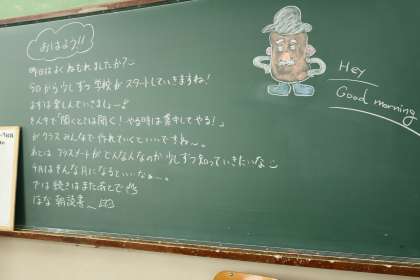 おはよう!!
昨日はよくねむれましたか?~
今日から少しずつ学校がスタートしていきますね!
まずは楽しんでいきましょ~♪
その中で「聞くときは聞く!やる時は集中してやる!」
がクラスみんなでやれていくといいですね~。
あとはクラスメートがどんな人なのか少しずつ知っていきたいな
今月はそんな月になるといいなぁ~。
では続きはまたあとで
ほな朝読書~
Hey
Good morning